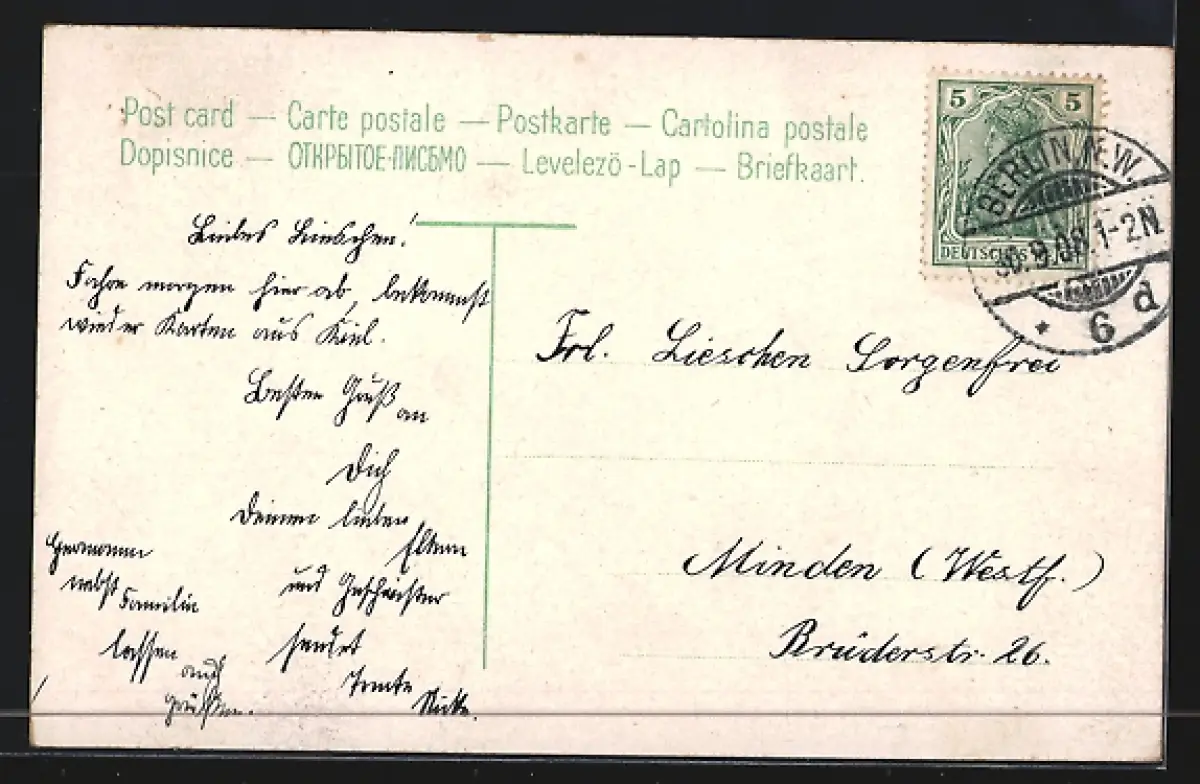 Post card — Carte postale — Postkarte — Cartolina postale
Dopisnice — ОТКРЫТОЕ ПИСЬМО — Levelezö-Lap — Briefkaart.
5 5
DEUTSCHES
BERLIN, N.W.
30.9.08.1-2N
* 6 d
Liebes Lieschen!
Fahre morgen hier ab, bekommst
wieder Karten aus Kiel.
Besten Gruß an
Dich
Deinen lieben
Eltern
und Geschwister
sendet
Tante
Hermann
nebst Familie
lassen
auch
grüßen.
Frl. Lieschen Sorgenfrei
Minden (Westf.)
Brüderstr. 26.